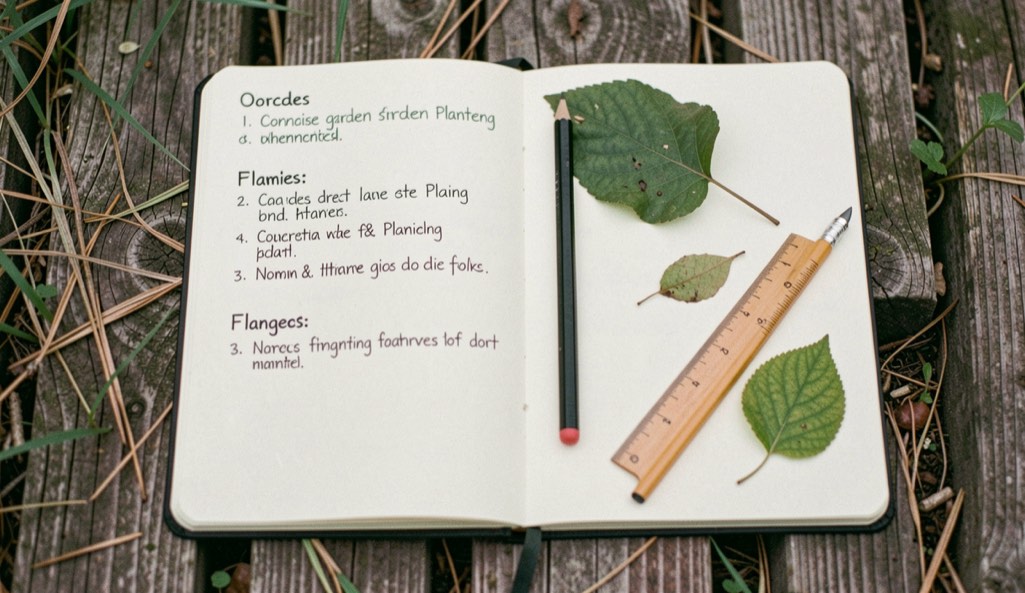 Oorcdes
1. Concise garden śirden Planteng
a. ohenncnted.
Flamies:
2. Coaides drect lane ste Plaing
bnd. Htaners.
4. Coucretia wbe f& Planiclng
pdatl.
3. Nomm & Hhame gios do die folks.
Flangecs:
3. Norecs fingnting foahrves lof dort
mamtel.